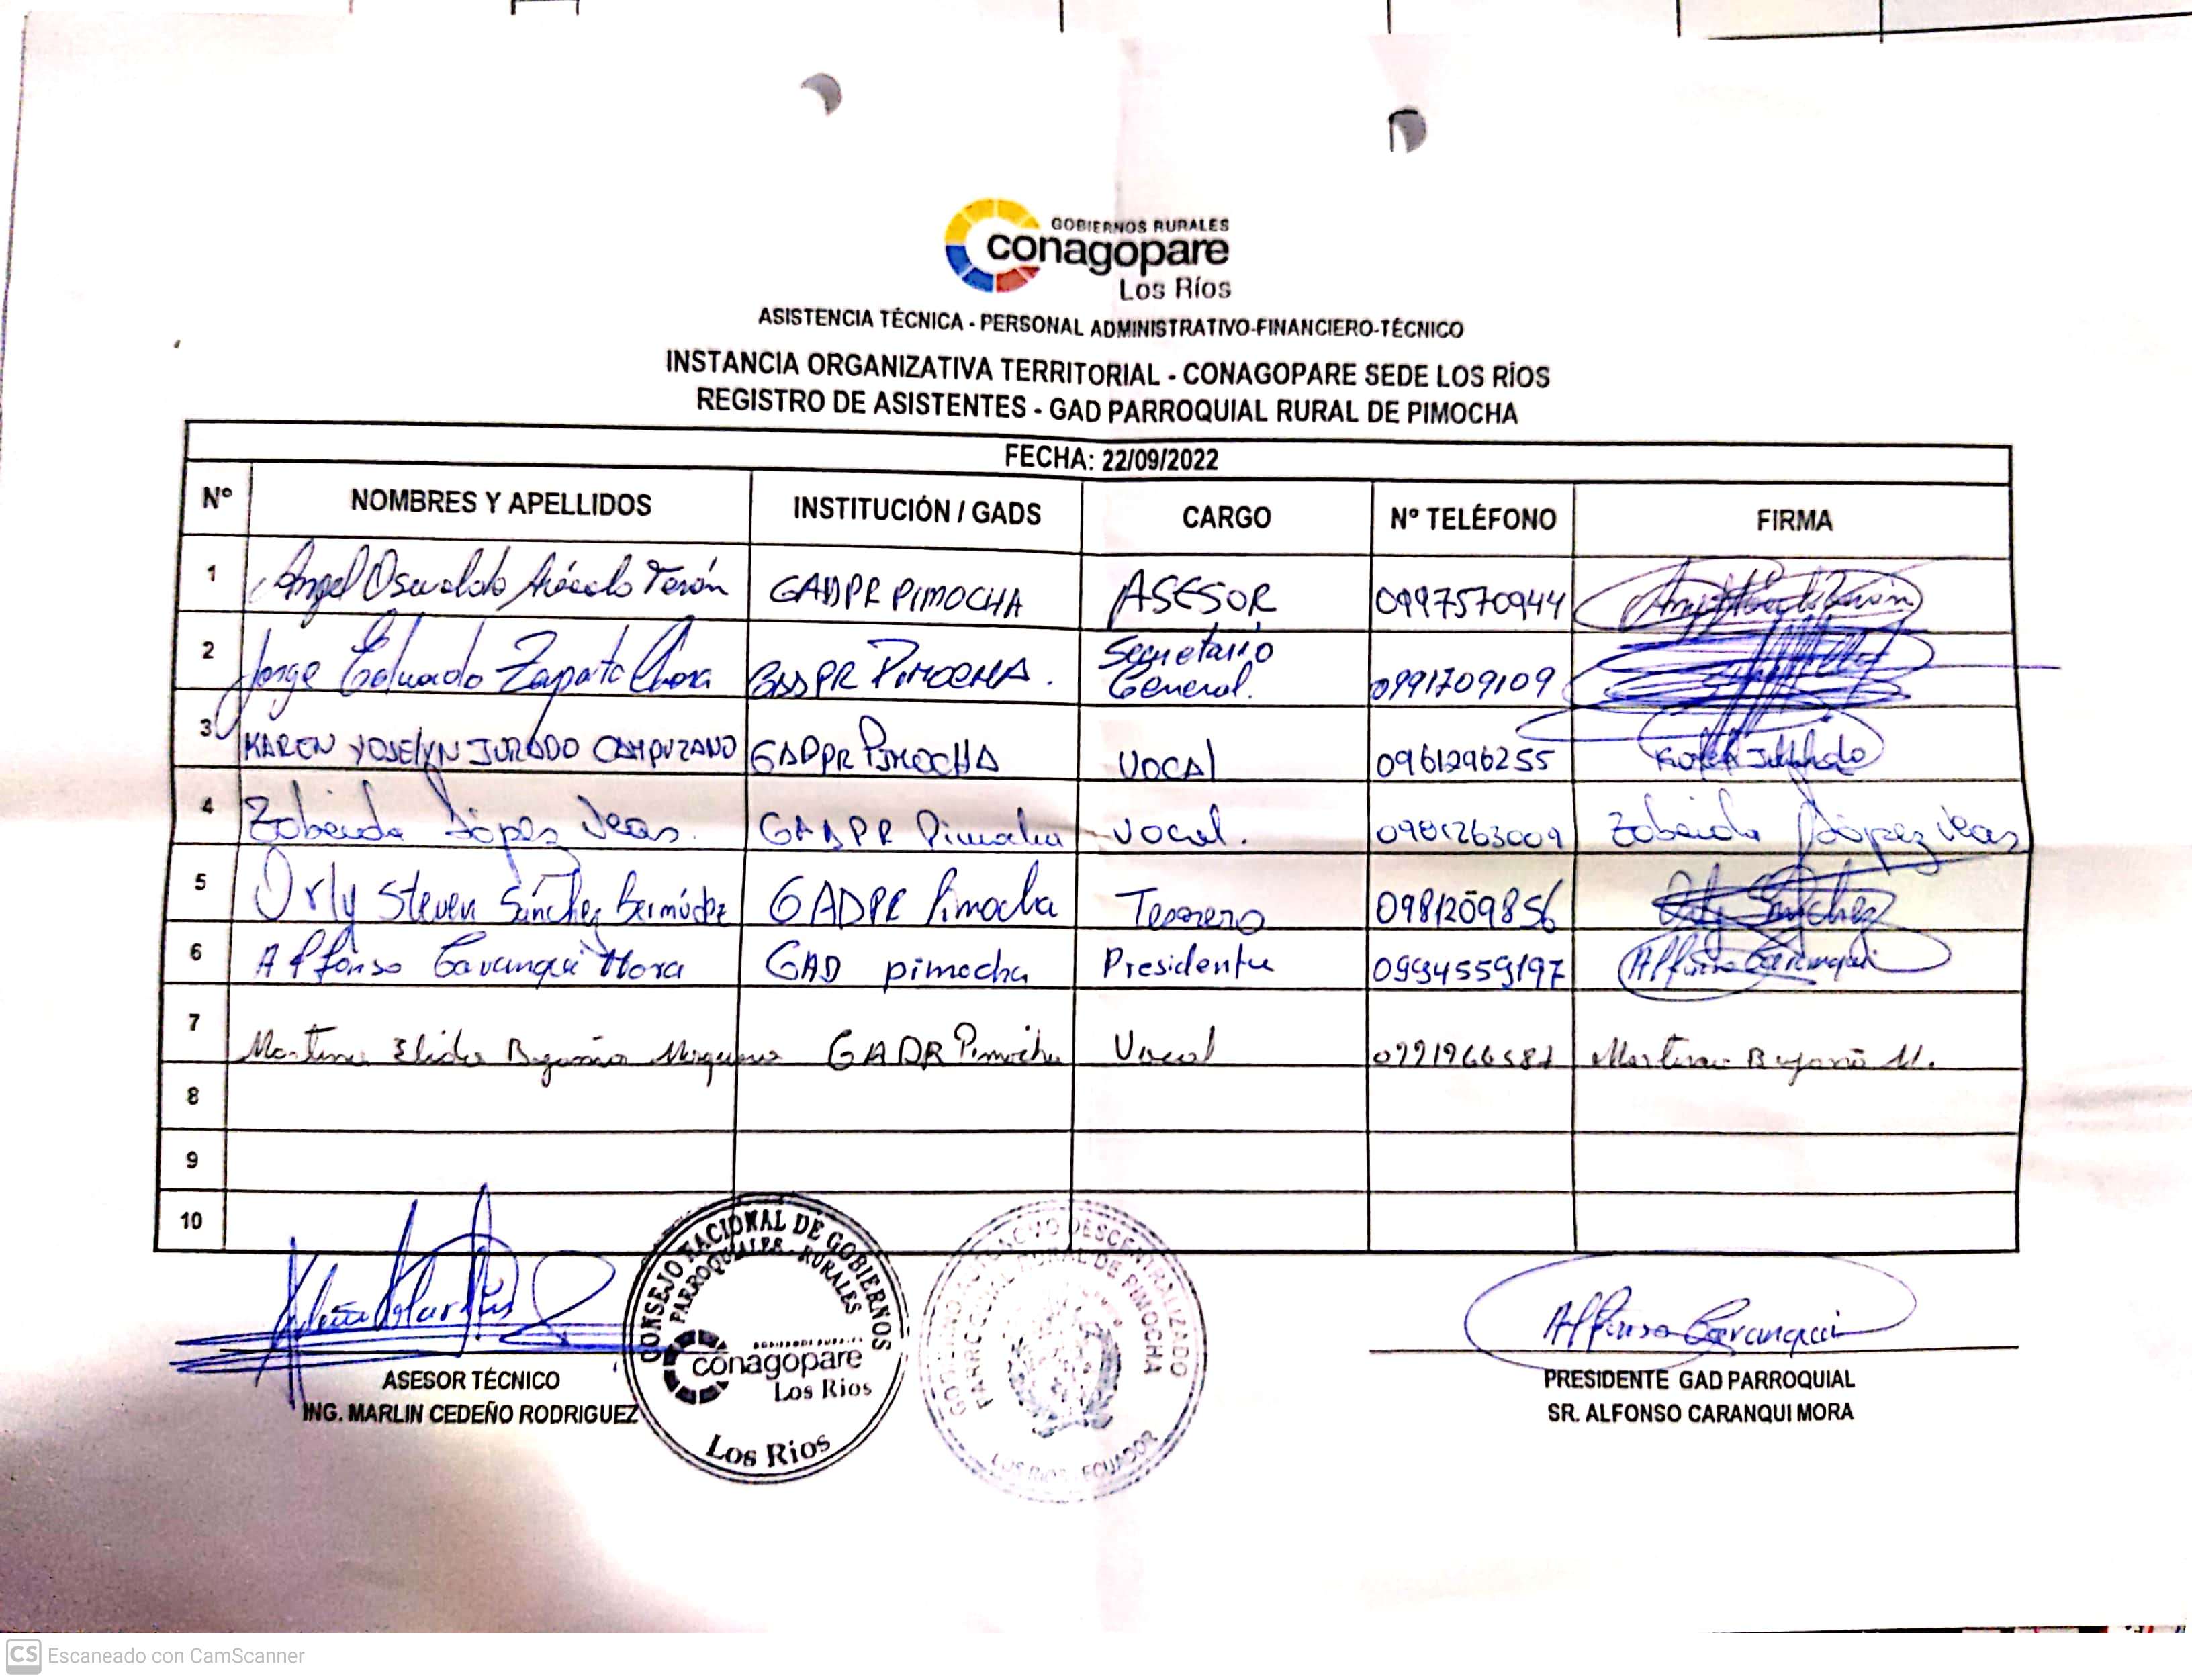 GOBIERNOS RURALES
conagopare
Los Ríos
ASISTENCIA TÉCNICA - PERSONAL ADMINISTRATIVO-FINANCIERO-TÉCNICO
INSTANCIA ORGANIZATIVA TERRITORIAL - CONAGOPARE SEDE LOS RÍOS
REGISTRO DE ASISTENTES - GAD PARROQUIAL RURAL DE PIMOCHA
FECHA: 22/09/2022
Nº NOMBRES Y APELLIDOS INSTITUCIÓN / GADS CARGO Nº TELÉFONO FIRMA
1 Angel Oswaldo Terán GADPR PIMOCHA ASESOR 0997570944
2 Jorge Eduardo Zapata GADPR PIMOCHA. Secretario General. 0991709109
3 KAREN YOSELYN JURADO CAMPUZANO GADPR PIMOCHA VOCAL 0961296255 Karen Jurado
4 Zobeida López Veas. GADPR Pimocha Vocal. 0981263009 Zobeida López Veas
5 Orly Steven Sánchez Bermúdez GADPR Pimocha Tesorero 0981209856 Orly Sánchez
6 Alfonso Caranqui Mora GAD pimocha Presidente 0994559197 Alfonso Caranqui
7 Martina Elida GADR Pimocha Vocal Martina M.
8
9
10
CONSEJO NACIONAL DE GOBIERNOS
PARROQUIALES - RURALES
GOBIERNOS RURALES
conagopare
Los Rios
Los Rios
GOBIERNO AUTONOMO DESCENTRALIZADO
PARROQUIAL RURAL DE PIMOCHA
LOS RIOS - ECUADOR
Alfonso Caranqui
ASESOR TÉCNICO
ING. MARLIN CEDEÑO RODRIGUEZ
PRESIDENTE GAD PARROQUIAL
SR. ALFONSO CARANQUI MORA
CS Escaneado con CamScanner